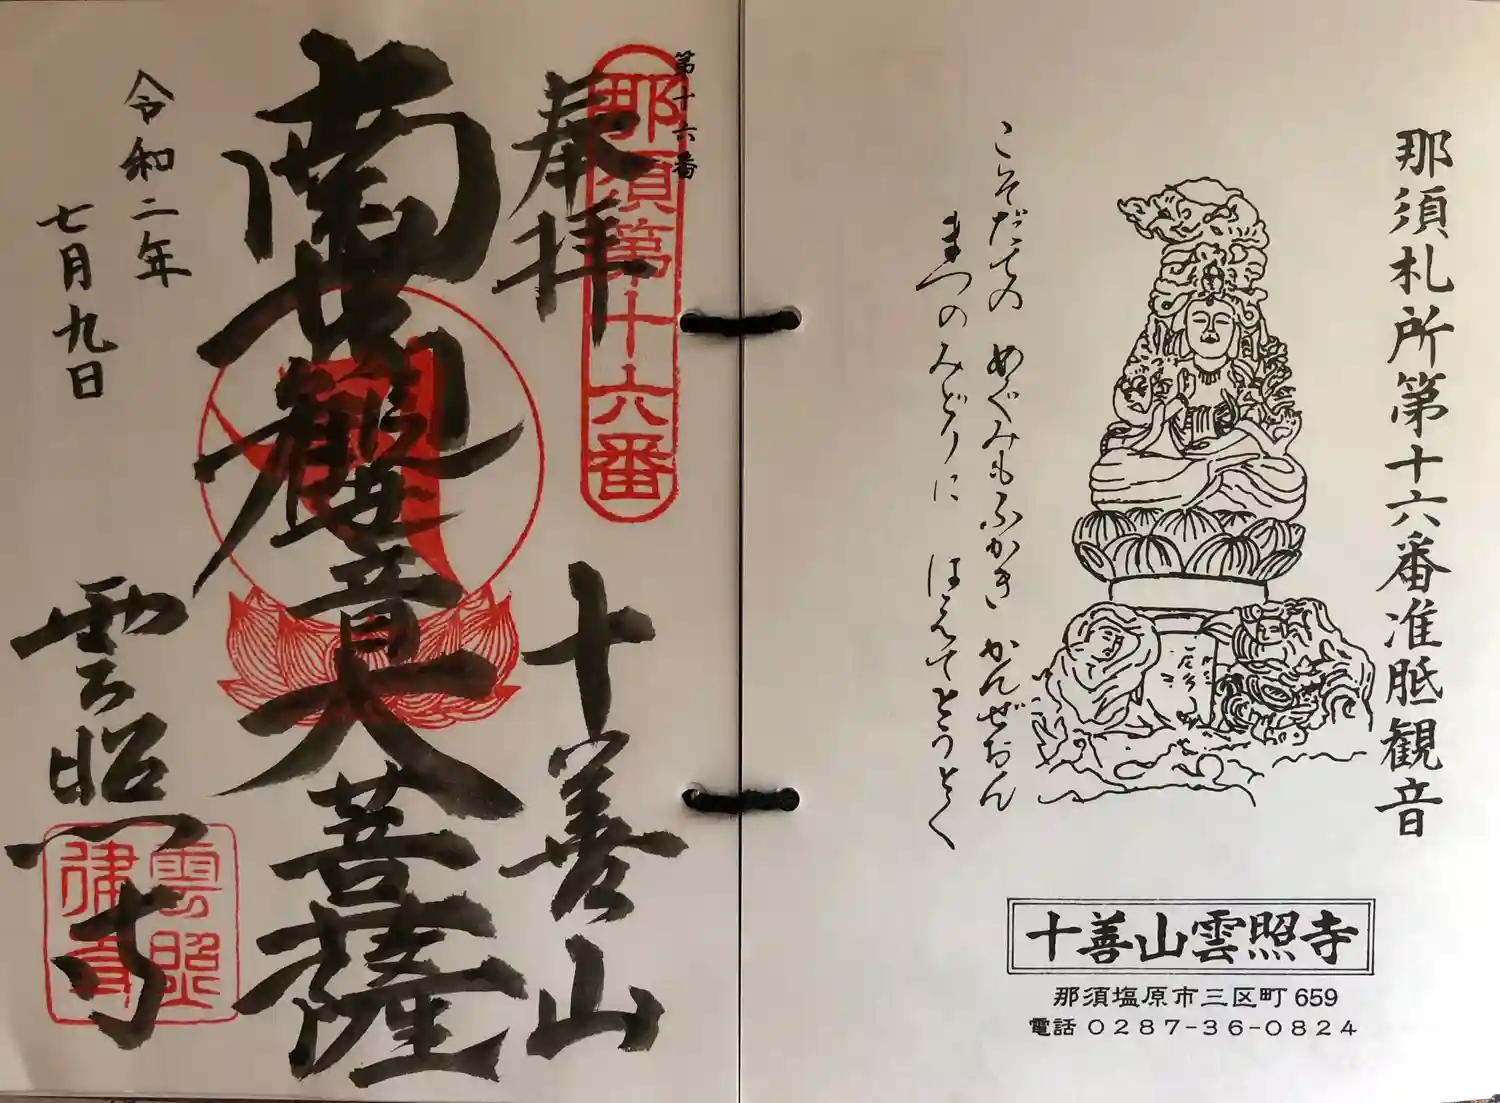 那須札所第十六番准胝観音
こそだての めぐみもふかき かんぜおん
まつのみどりに はえてとうとく
十善山雲照寺
那須塩原市三区町659
電話 0287-36-0824
第十六番
那須第十六番
奉拝
十善山
南無
観世音大菩薩
令和二年
七月九日
雲照寺
雲照
律寺